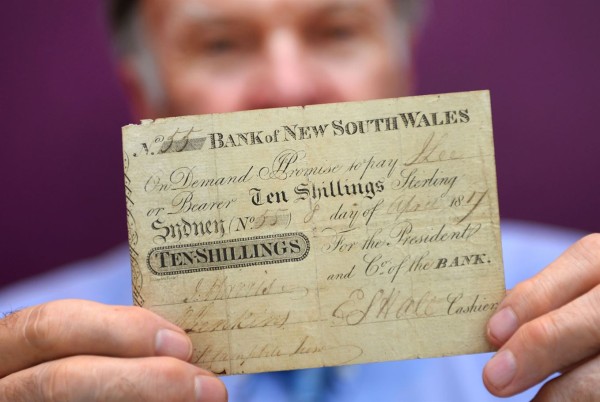 No. 55 BANK of NEW SOUTH WALES
On Demand I Promise to pay
or Bearer Ten Shillings Sterling
Sydney (No. 55) 8 day of April 1817
TEN-SHILLINGS For the President
and Co. of the BANK.
Jenkins E S Hall Cashier